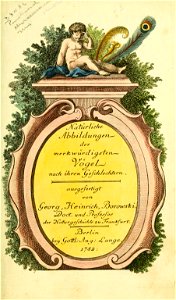 Natürliche
Abbildungen
der
merkwürdigsten
Vögel
nach ihren Geschlechtern
ausgefertigt
von
Georg, Heinrich, Borowski,
Doct. und Professor
der Naturgeschichte zu Frankfurt.
Berlin
bey Gottl. Aug. Lange.